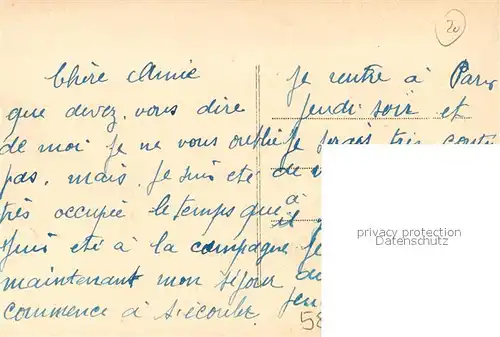 20
Chère Amie
que devez, vous dire
de moi je ne vous oublie
pas, mais, je suis eté
très occupée le temps que
suis eté à la campagne
maintenant mon séjour
commence à s'écouler.
Je rentre à Paris
jeudi soir et
je serais très
de
à
il
je
58
privacy protection
Datenschutz